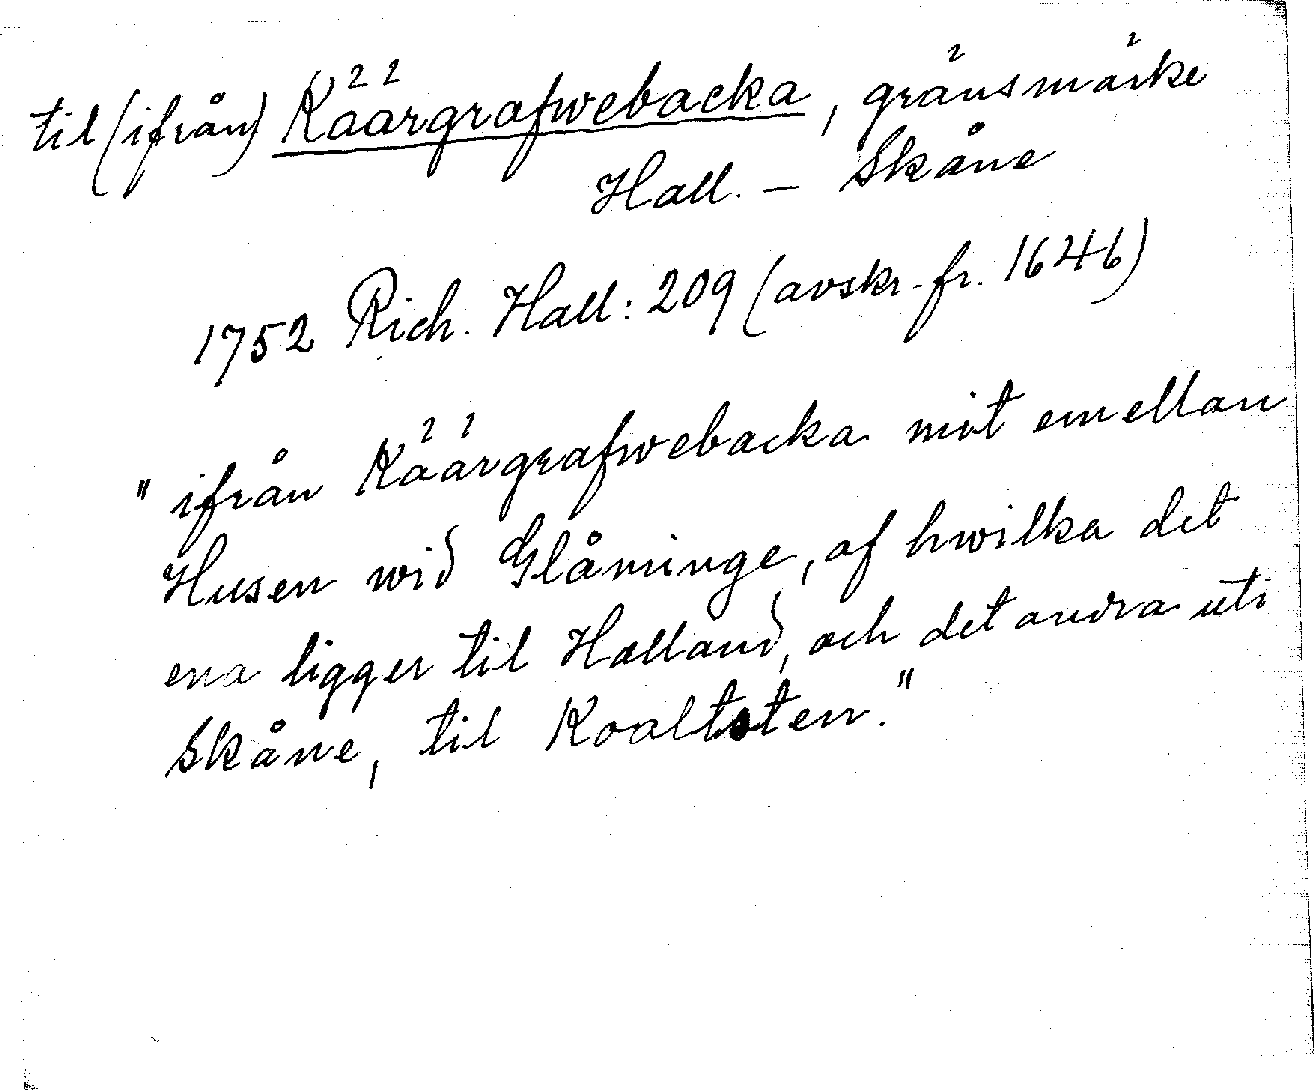 til (ifrån) Käärgrafwebacka, gränsmärke
Hall. – Skåne
1752 Rich. Hall: 209 (avskr. fr. 1646)
"ifrån Käärgrafwebacka mit emellan
Husen wid Glåminge, af hwilka det
ena ligger til Halland, och det andra uti
Skåne, til Koaltsten."